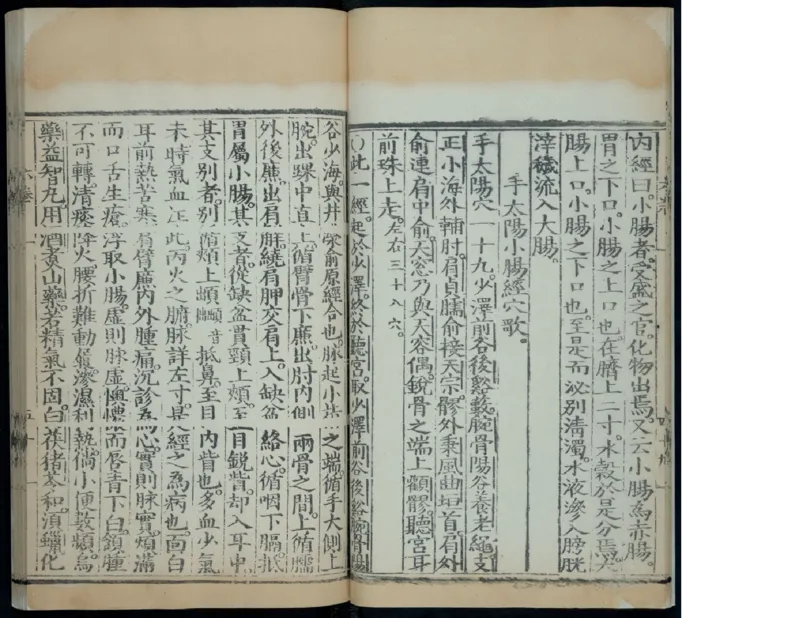 內經曰。小腸者。受盛之官。化物出焉。又云小腸爲赤腸。
胃之下口。小腸之上口也。在臍上二寸。水穀於是分焉。大
腸上口。小腸之下口也。至是而泌別清濁。水液滲入膀胱
滓穢流入大腸。
手太陽小腸經穴歌。
手太陽穴一十九。少澤前谷後谿藪。腕骨陽谷養老繩。支
正小海外輔肘。肩貞臑俞接天宗。髎外秉風曲垣首。肩外
俞連肩中俞。天窓乃與天容偶。銳骨之端上顴髎。聽宮耳
前珠上走。左右三十八穴。
此一經。起於少澤。終於聽宮。取少澤前谷後谿腕骨陽
谷少海。與井滎俞原經合也。脉起小指之端。循手大側上
腕。出踝中。直上循臂骨下廉。出肘內側兩骨之間。上循臑
外後廉。出肩解。繞肩胛。交肩上。入缺盆絡心。循咽下膈。抵
胃屬小腸。其支者。從缺盆貫頸上頰。至目銳眥。却入耳中
其支別者。別循頰上䪼音抵鼻。至目內眥也。多血少氣
未時氣血注此。丙火之腑。脉詳左寸。是經之為病也。面白
耳前熱。苦寒。肩臂廉內外腫痛。沉診為心。實則脉實。煩滿
而口舌生瘡。浮取小腸。虛則脉虛懊憹而唇青下白。頷腫
不可轉。清痰降火腰折難動。滲濕利熱。倘小便數頻。烏
藥益智丸用酒煮山藥。若精氣不固。白茯猪苓和。須蠟化